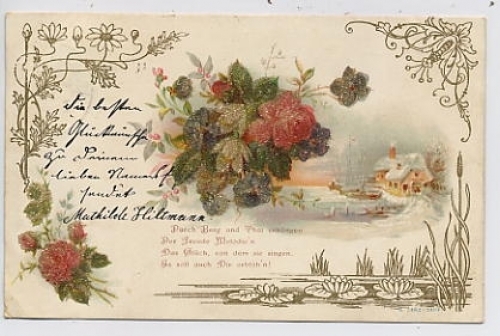 Die besten
Glückwünsche
zu Deinem
lieben Namensf.
sendet
Mathilde Hiltmann
Durch Berg und Thal erklingen
Der Freude Melodie'n
Das Glück, von dem sie singen,
Es soll auch Dir erblüh'n!